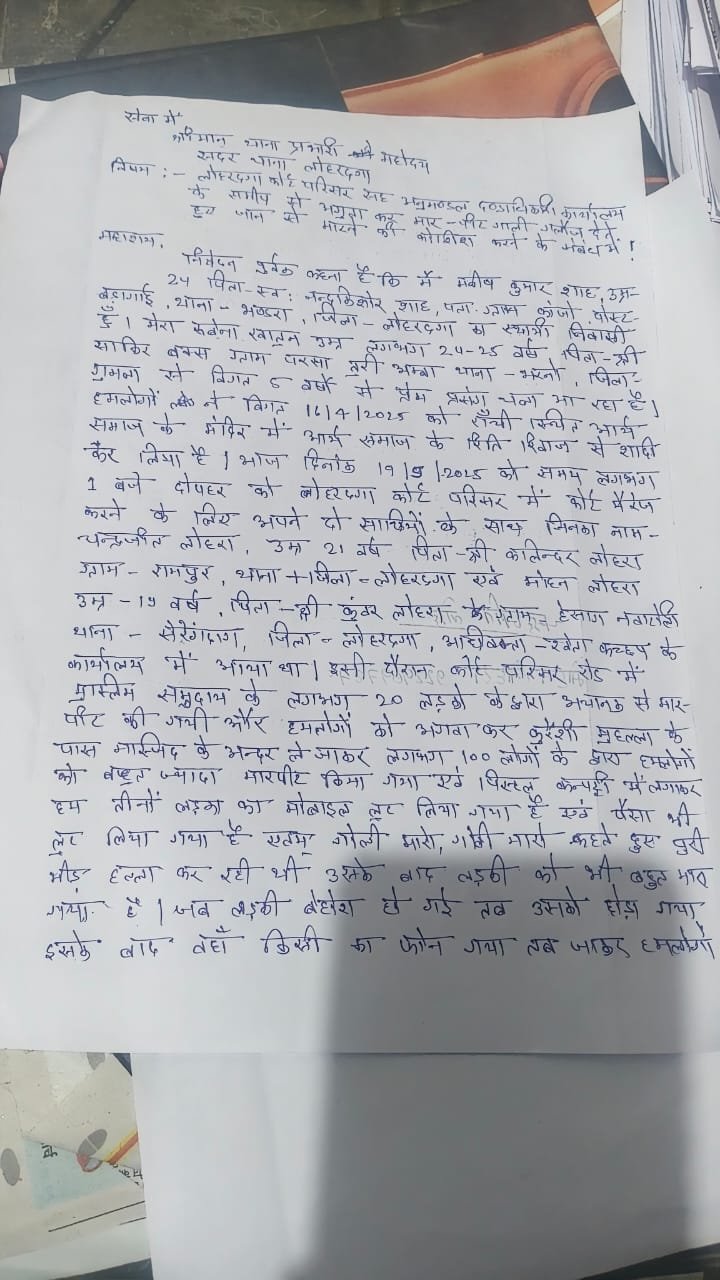 सेवा में
श्रीमान थाना प्रभारी महोदय
सदर थाना लोहरदगा
विषय :- लोहरदगा कोर्ट परिसर सह अनुमण्डल दण्डाधिकारी कार्यालय
के समीप से अगुवा कर मार-पीट गाली गलौज देते
हुए जान से मारने की कोशिश करने के संबंध में !
महाशय,
निवेदन पूर्वक कहना है कि मैं कुमार शाह, उम्र-
24 पिता-स्व: नन्दकिशोर शाह, पता ग्राम कांजो पोस्ट-
बड़ागाई, थाना- भण्डरा, जिला-लोहरदगा का स्थायी निवासी
हूँ। मेरा खातुन उम्र लगभग 24-25 वर्ष पिता-श्री
साकिर बक्स ग्राम परसा तुरी अम्बा थाना-भरनो, जिला-
गुमला से विगत 5 वर्षों से प्रेम प्रसंग चला आ रहा है।
हमलोगों ने विगत 16/4/2025 को राँची स्थित आर्य
समाज के मंदिर में आर्य समाज के रिति रिवाज से शादी
कर लिया है। आज दिनांक 19/5/2025 को समय लगभग
1 बजे दोपहर को लोहरदगा कोर्ट परिसर में कोर्ट मैरेज
करने के लिए अपने दो साथियों के साथ जिनका नाम-
चन्द्रजीत लोहरा, उम्र 21 वर्ष पिता-श्री कलिन्दर लोहरा
ग्राम- रामपुर, थाना+जिला=लोहरदगा एवं मोहन लोहरा
उम्र-19 वर्ष, पिता-श्री कुंवर लोहरा ग्राम हेसाग नवाटोली
थाना- सेरेंगदाग, जिला=लोहरदगा, अधिवक्ता-श्वेता कच्छप के
कार्यालय में आया था। इसी दौरान कोर्ट परिसर रोड में
मुस्लिम समुदाय के लगभग 20 लड़को के द्वारा अचानक से मार-
पीट की गयी और हमलोगों को अगवा कर कुरैशी मुहल्ला के
पास मस्जिद के अन्दर ले जाकर लगभग 100 लोगों के द्वारा हमलोगों
को बहुत ज्यादा मारपीट किया गया एवं पिस्टल कनपट्टी में लगाकर
हम तीनों लड़का का मोबाइल लुट लिया गया है एवं पैसा भी
लुट लिया गया है एवम् गोली मारो, गोली मारो कहते हुए पुरी
भीड़ हल्ला कर रही थी उसके बाद लड़की को भी बहुत मारा
गया है। जब लड़की बेहोश हो गई तब उसको छोड़ा गया
इसके बाद वहाँ किसी का फोन गया तब जाकर हमलोगों